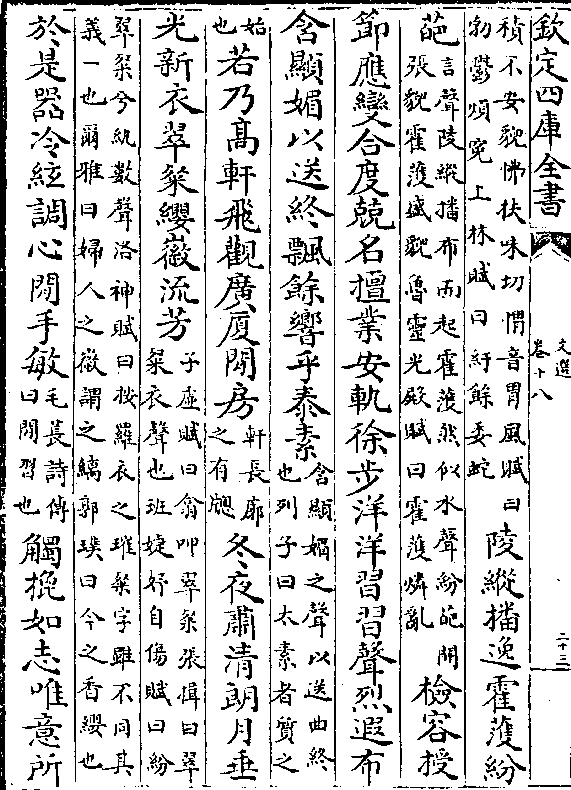 欽定四庫全書 文選 卷十八 二十三
積不安貌怫扶味切㥜音胃風賦曰勃鬱煩寃上林賦曰紆餘委蛇陵縱播逸霍濩紛
葩言聲陵縱播布而起霍濩然似水聲紛葩開張貌霍濩盛貌魯靈光殿賦曰霍濩燐亂檢容授
節應變合度兢名擅業安軌徐步洋洋習習聲烈遐布
含顯媚以送終飄餘響乎泰素含顯媚之聲以送曲終也列子曰太素者質之
始也若乃高軒飛觀廣厦閒房軒長廊之有牎冬夜肅清朗月垂
光新衣翠粲纓徽流芳子虛賦曰翕呷翠粲張揖曰翠粲衣聲也班婕妤自傷賦曰紛
翠粲兮紈數聲洛神賦曰披羅衣之璀粲字雖不同其義一也爾雅曰婦人之徽謂之縭郭璞曰今之香纓也
於是器冷絃調心閒手敏毛萇詩傳曰閒習也觸㧗如志唯意所